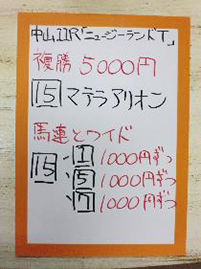 中山11R「ニュージーランドT」
複勝 5000円
15 マテラアリオン
馬連とワイド
15 1 1000円ずつ
5 1000円ずつ
7 1000円ずつ